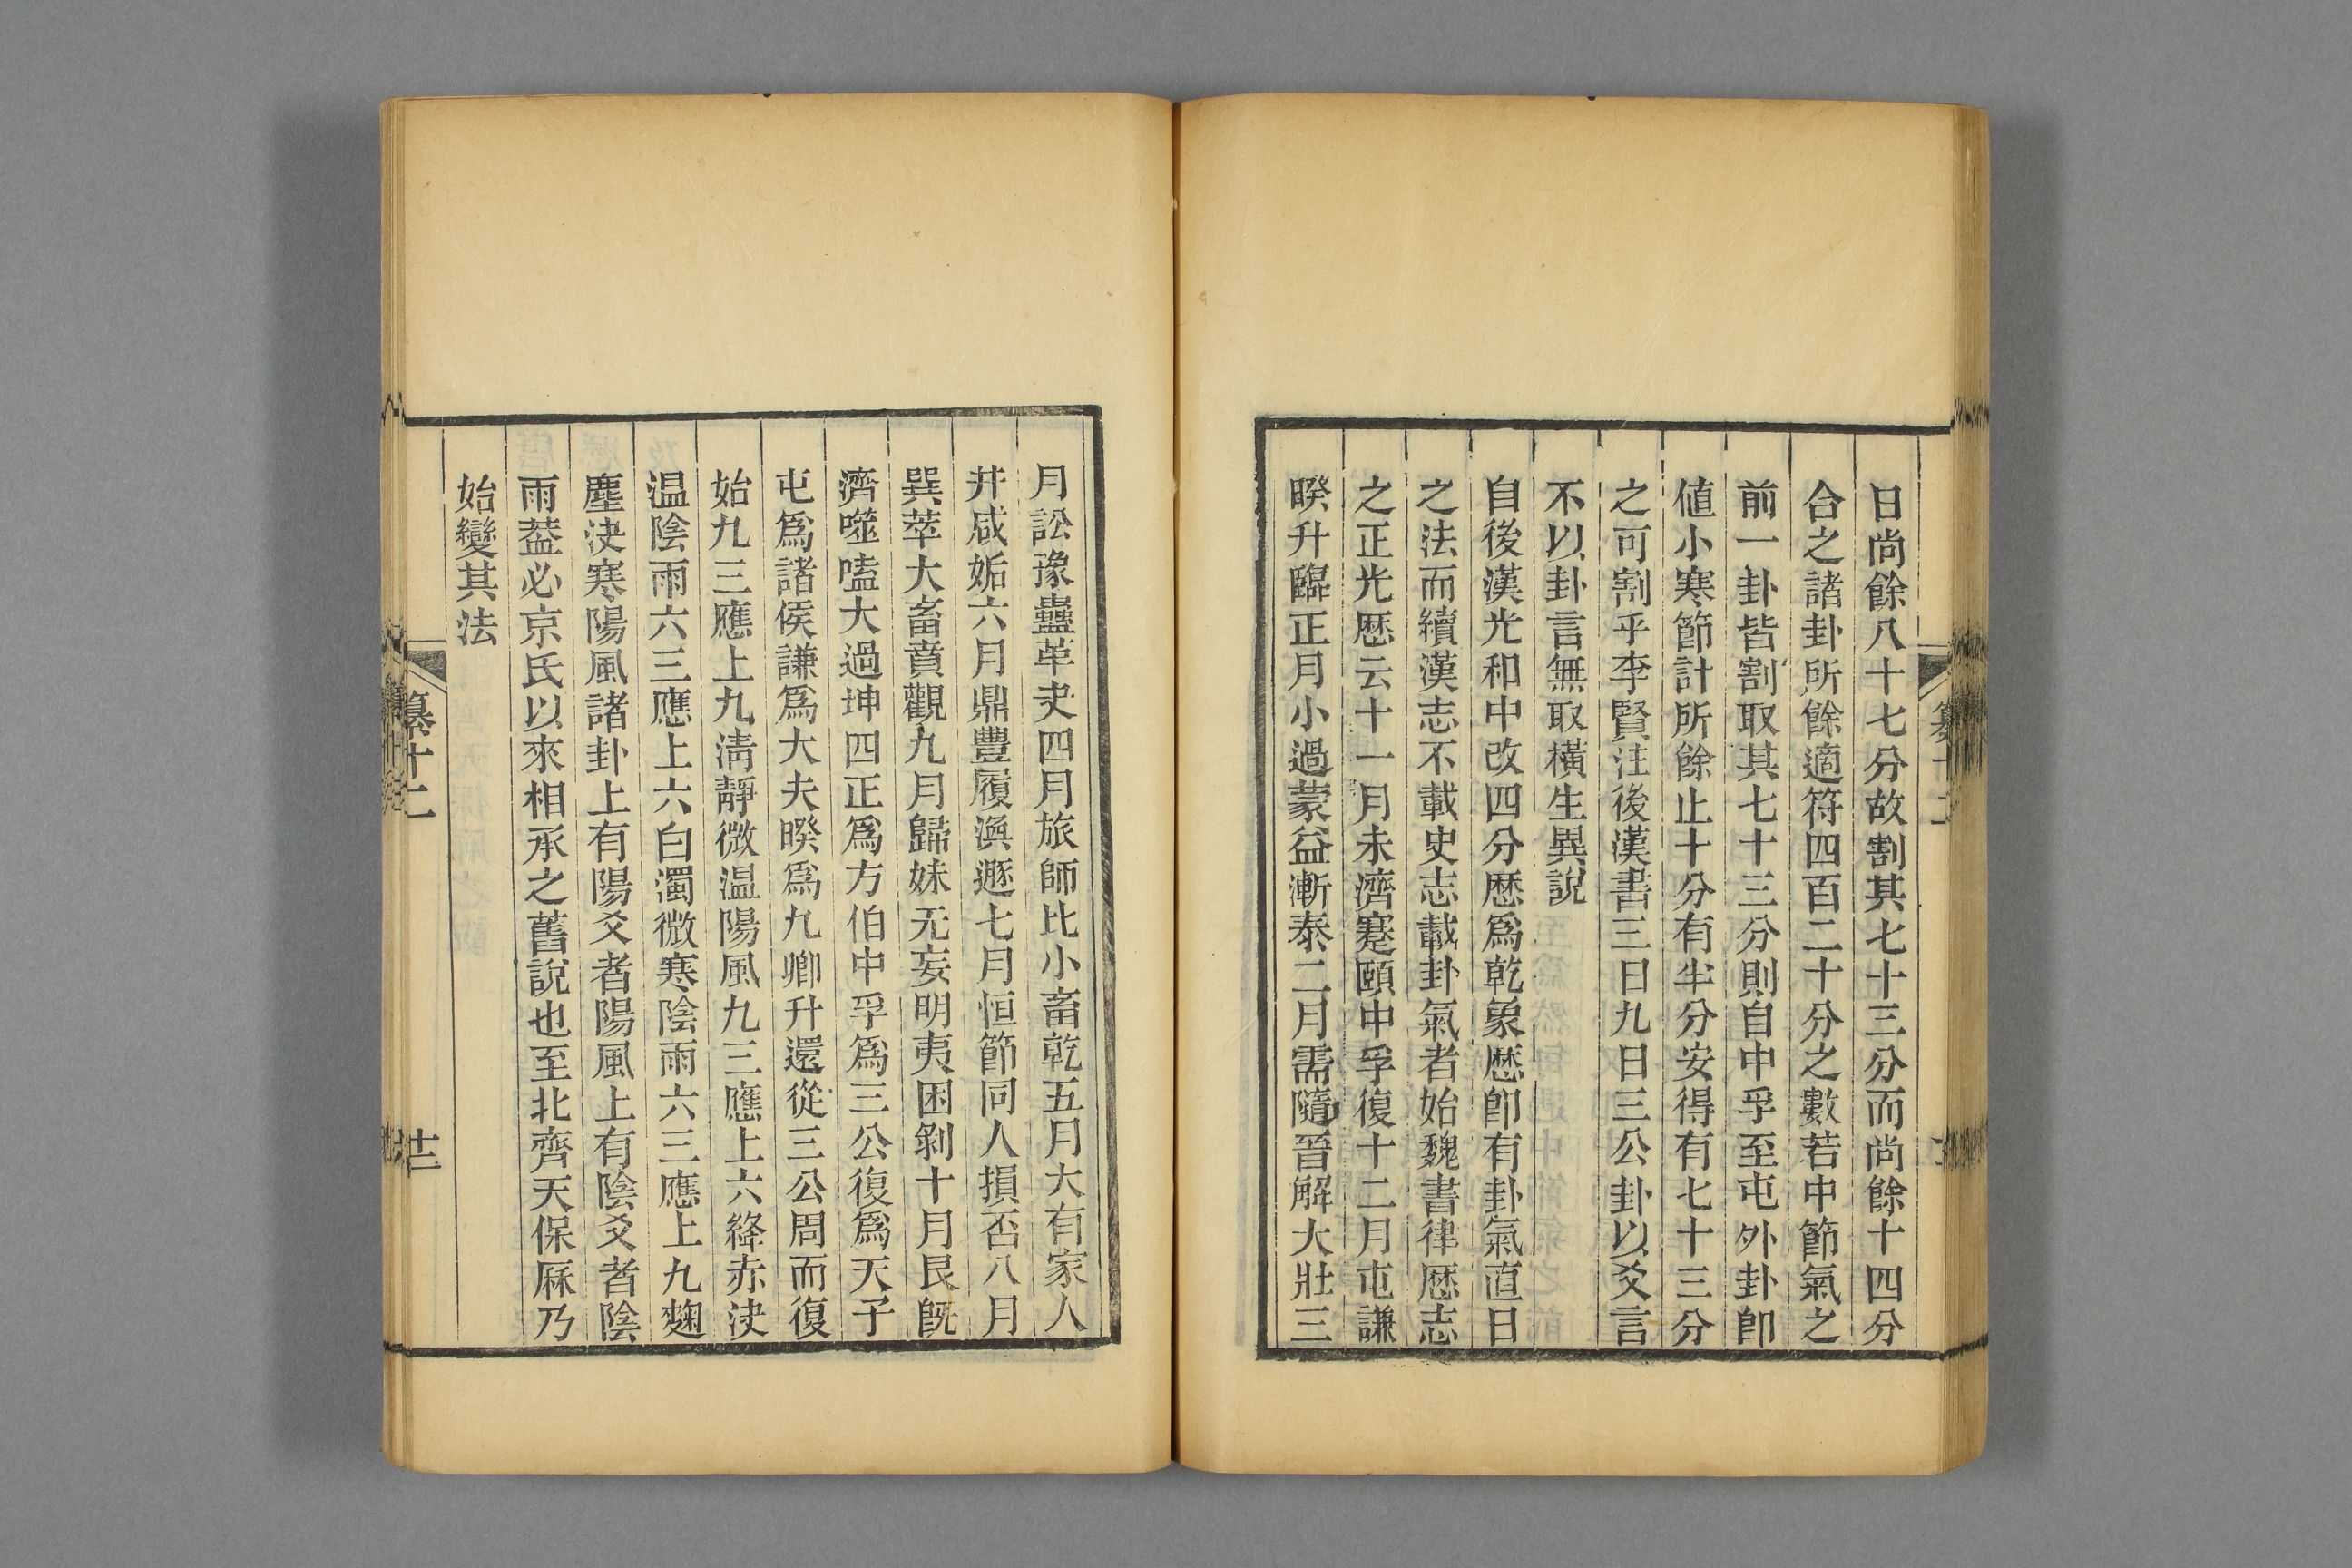 日尚餘八十七分故割其七十三分而尚餘十四分
合之諸卦所餘適符四百二十分之數若中節氣之
前一卦皆割取其七十三分則自中孚至屯外卦卽
値小寒節計所餘止十分有半分安得有七十三分
之可割乎李賢注後漢書三日九日三公卦以爻言
不以卦言無取橫生異說
自後漢光和中改四分歷爲乾象歷卽有卦氣直日
之法而續漢志不載史志載卦氣者始魏書律歷志
之正光歷云十一月未濟蹇頤中孚復十二月屯謙
睽升臨正月小過蒙益漸泰二月需隨晉解大壯三
月訟豫蠱革夬四月旅師比小畜乾五月大有家人
井咸姤六月鼎豐履渙遯七月恒節同人損否八月
巽萃大畜賁觀九月歸妹无妄明夷困剝十月艮旣
濟噬嗑大過坤四正爲方伯中孚爲三公復爲天子
屯爲諸侯謙爲大夫睽爲九卿升還從三公周而復
始九三應上九淸靜微温陽風九三應上六絳赤決
温陰雨六三應上六白濁微寒陰雨六三應上九麴
塵決寒陽風諸卦上有陽爻者陽風上有陰爻者陰
雨葢必京氏以來相承之舊說也至北齊天保厤乃
始變其法
纂十二
廿二